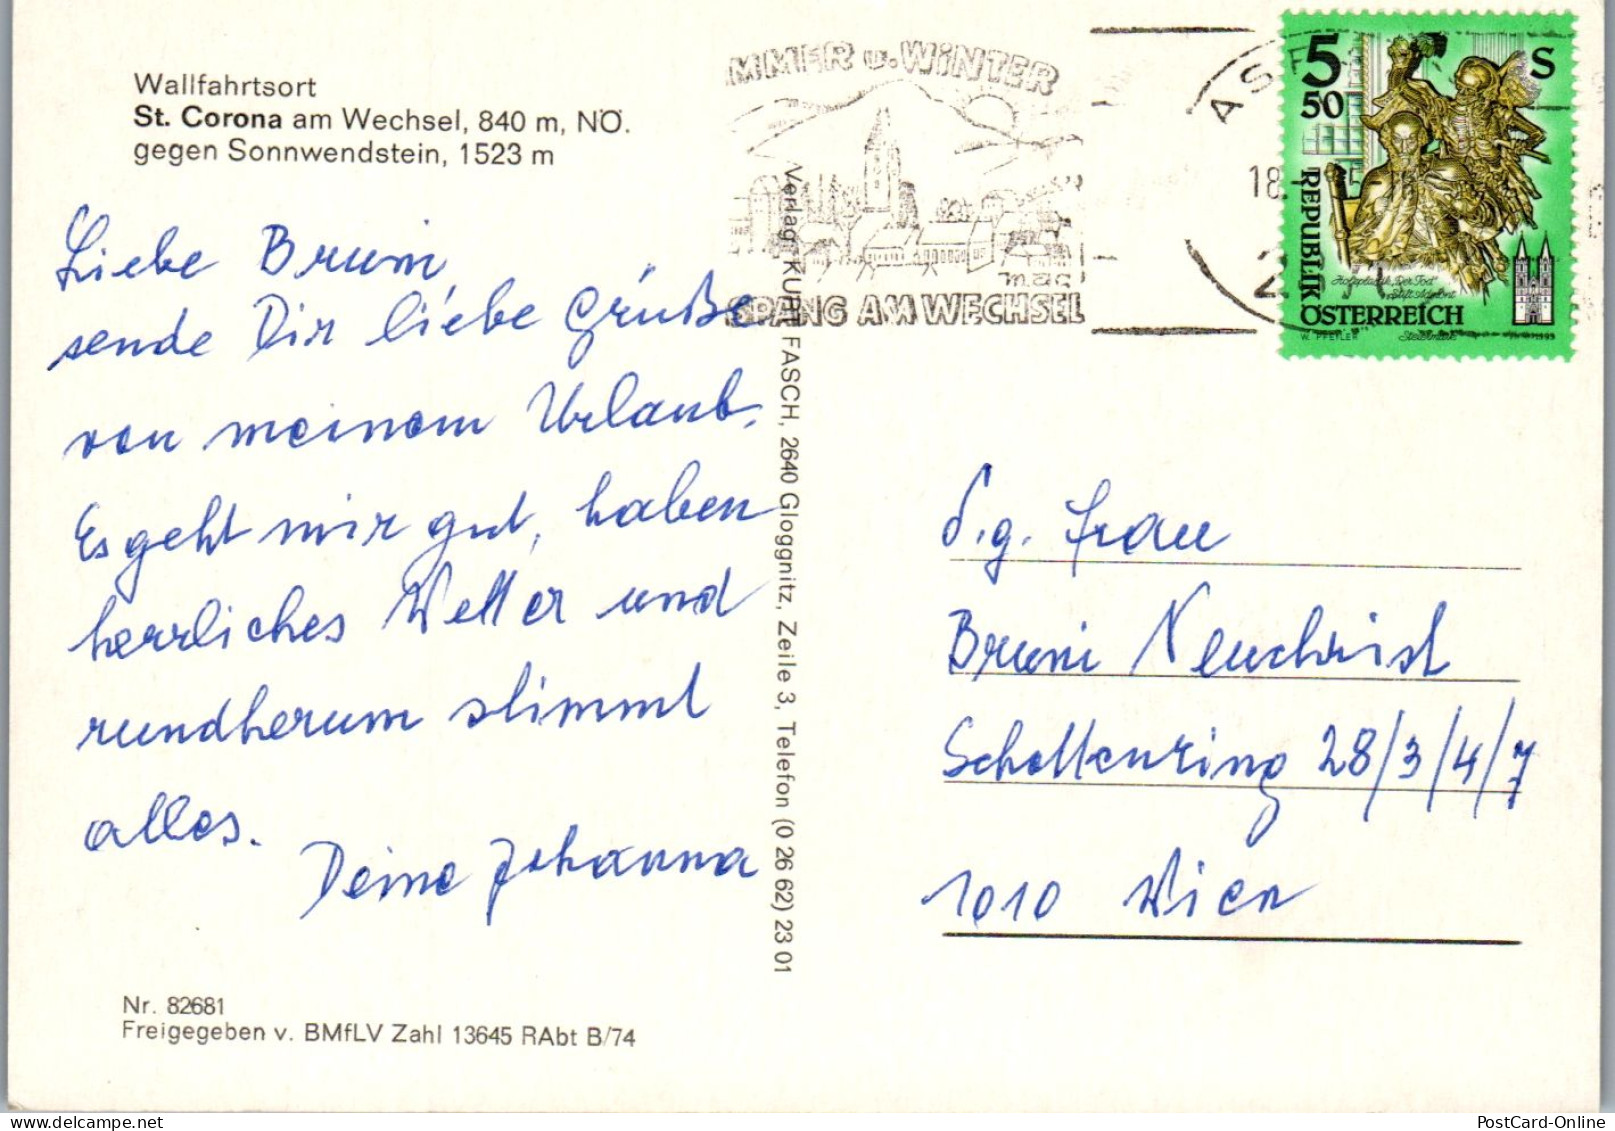 Wallfahrtsort
St. Corona am Wechsel, 840 m, NÖ.
gegen Sonnwendstein, 1523 m
Liebe Bruni
sende Dir liebe Grüße
von meinem Urlaub.
Es geht mir gut, haben
herrliches Wetter und
rundherum stimmt
alles.
Deine Johanna
Nr. 82681
Freigegeben v. BMfLV Zahl 13645 RAbt B/74
Verlag KURT FASCH, 2640 Gloggnitz, Zeile 3, Telefon (0 26 62) 23 01
MMER u. WiNTER
SPANG AM WECHSEL
AS
18.
2
5 S
50
REPUBLIK
ÖSTERREICH
Holzplastik „Der Tod"
Stift Admont
Steiermark
W. PFEILER
1993
S.g. Frau
Bruni Neuchrist
Schottenring 28/3/4/7
1010 Wien
PostCard-Online